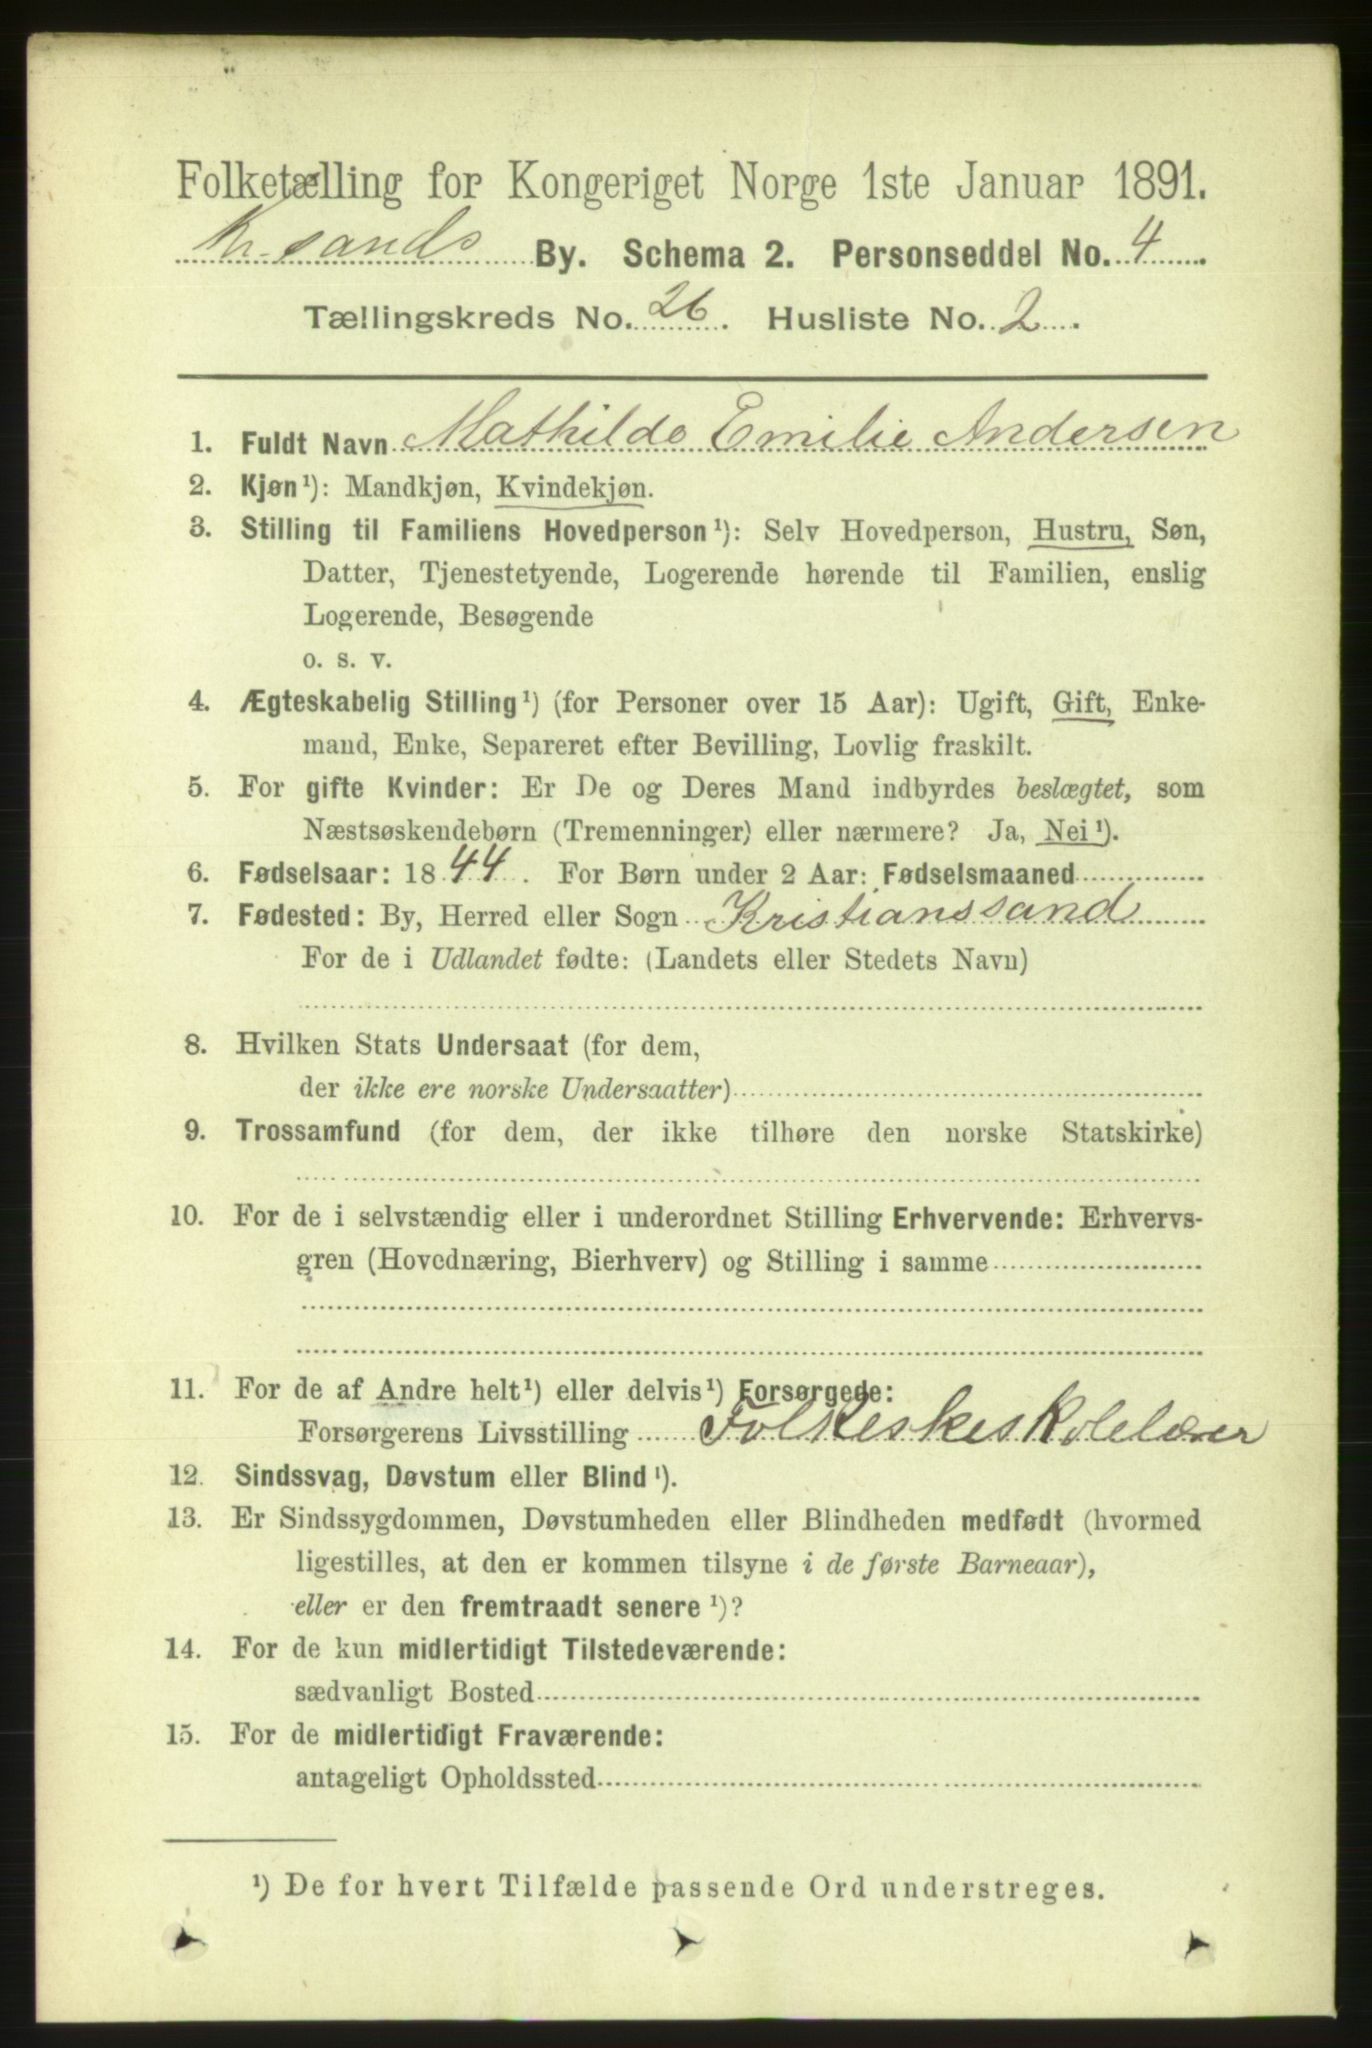 Folketælling for Kongeriget Norge 1ste Januar 1891.
Kr.sands By. Schema 2. Personseddel No. 4
Tællingskreds No. 26. Husliste No. 2.
1. Fuldt Navn Mathilde Emilie Andersen
2. Kjøn¹): Mandkjøn, Kvindekjøn.
3. Stilling til Familiens Hovedperson¹): Selv Hovedperson, Hustru, Søn,
Datter, Tjenestetyende, Logerende hørende til Familien, enslig
Logerende, Besøgende
o. s. v.
4. Ægteskabelig Stilling¹) (for Personer over 15 Aar): Ugift, Gift, Enke-
mand, Enke, Separeret efter Bevilling, Lovlig fraskilt.
5. For gifte Kvinder: Er De og Deres Mand indbyrdes beslægtet, som
Næstsøskendebørn (Tremenninger) eller nærmere? Ja, Nei¹).
6. Fødselsaar: 1844. For Børn under 2 Aar: Fødselsmaaned
7. Fødested: By, Herred eller Sogn Kristianssand
For de i Udlandet fødte: (Landets eller Stedets Navn)
8. Hvilken Stats Undersaat (for dem,
der ikke ere norske Undersaatter)
9. Trossamfund (for dem, der ikke tilhøre den norske Statskirke)
10. For de i selvstændig eller i underordnet Stilling Erhvervende: Erhvervs-
gren (Hovednæring, Bierhverv) og Stilling i samme
11. For de af Andre helt¹) eller delvis¹) Forsørgede:
Forsørgerens Livsstilling Folkeskeskolelærer
12. Sindssvag, Døvstum eller Blind¹).
13. Er Sindssygdommen, Døvstumheden eller Blindheden medfødt (hvormed
ligestilles, at den er kommen tilsyne i de første Barneaar),
eller er den fremtraadt senere¹)?
14. For de kun midlertidigt Tilstedeværende:
sædvanligt Bosted
15. For de midlertidigt Fraværende:
antageligt Opholdssted
¹) De for hvert Tilfælde passende Ord understreges.